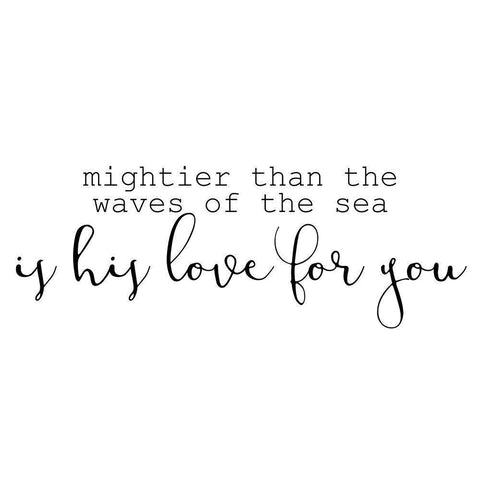 mightier than the
waves of the sea
is his love for you